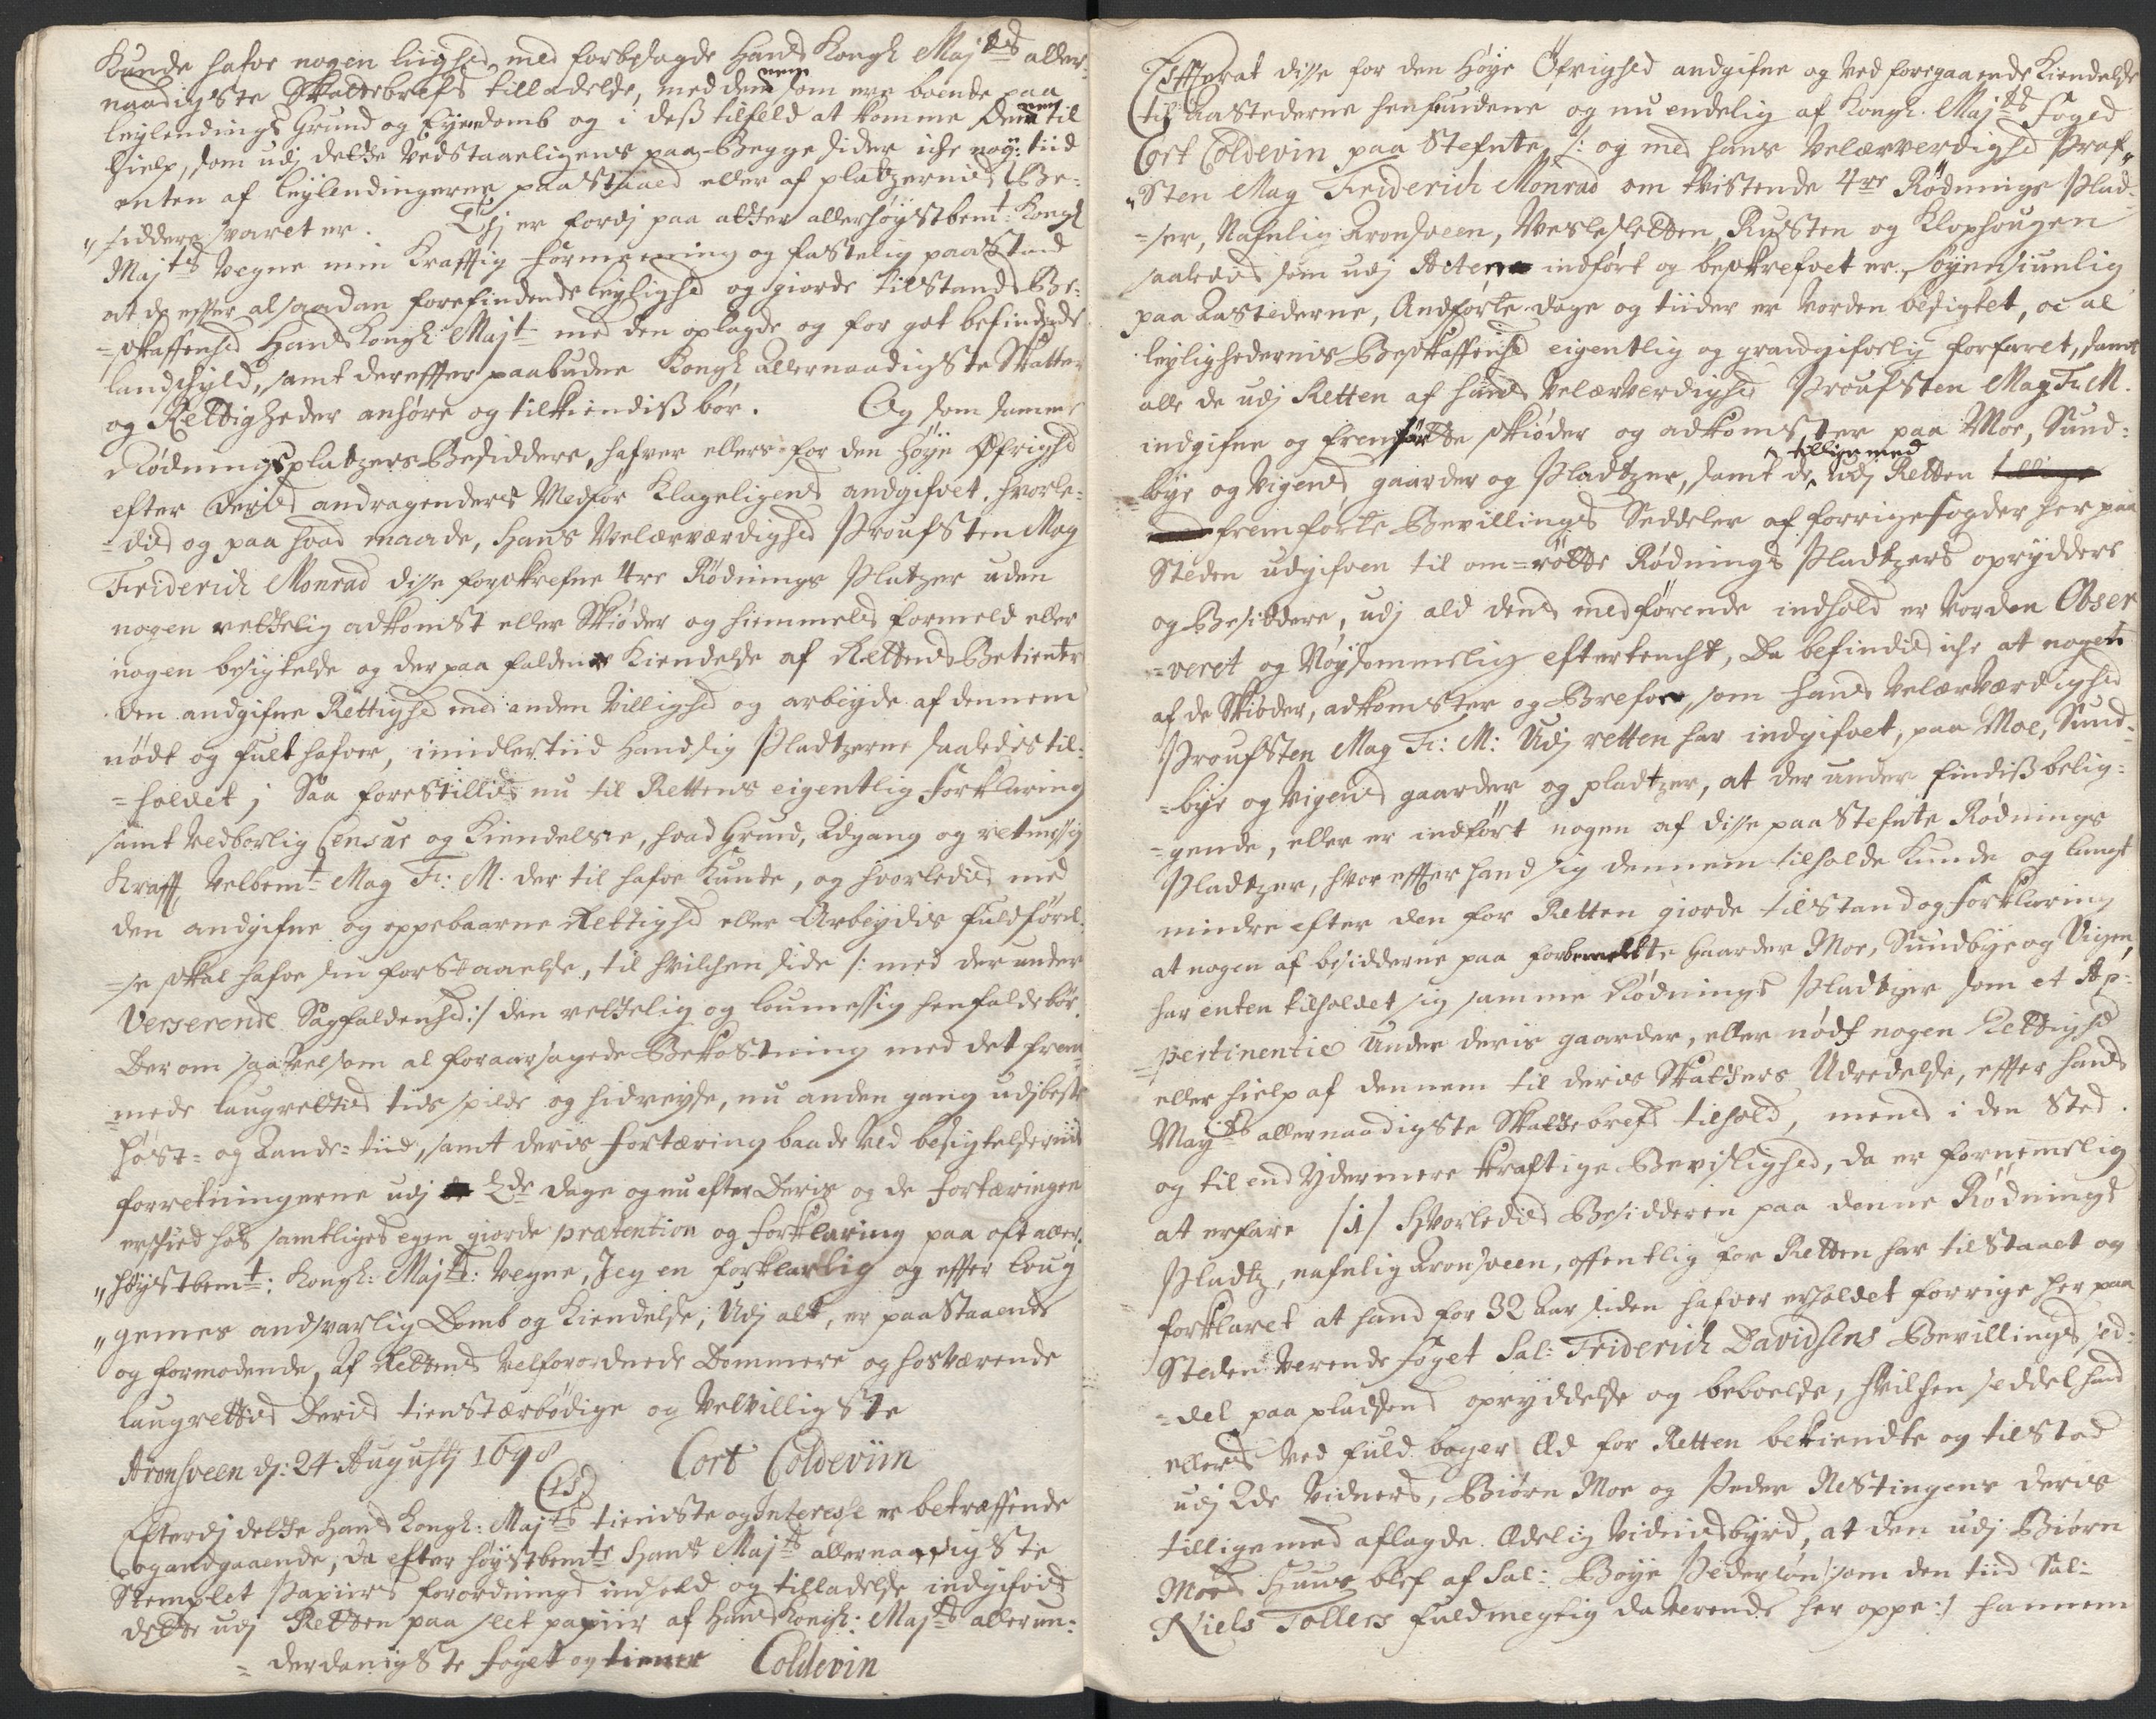 Kunde hafve nogen liighed med forbesagde Hans Kongl Majtds aller-
naadigste Skattebrefs tilladelse, med dennem som ere boende paa
leylendings Grund og Eyendomb og i dess tilfeld at komme dennem til
hielp, som udj dette Vedstaaeligens paa Begge sider iche noy: tiid
enten af leylendingerne paastaaed eller af platzernis Be-
"siddere svaret er. Thj er fordj paa atter allerhøystbemt: Kongl
Majts Vegne min Krafftig formeening og fastelig paastand
at de effter alsaadan forefindende leylighed og giorde tilstand Be-
=skaffenhed Hans Kongl Majt med den oplagde og for got befindende
landschyld, samt dereffter paabudne Kongl allernaadigste Skatter
og Rettigheder anhøre og tilkiendiss bør. Og som samme
Rødningsplatzers Besiddere, hafver ellers for den høye Øfrighed
efter deris andragenders Medfør Klageligens andgifvet, hvorle-
=dis og paa hvad maade, Hans Velærværdighed Proufsten Mag
Friderich Monrad disse forskrefne 4re Rødnings Platzer uden
nogen rettelig adkomst eller Skiøder og hiemmels formeld eller
nogen besigtelse og derpaa faldene Kiendelse af Rettens Betiente
den andgifne Rettighed med anden Villighed og arbeyde af dennem
nødt og fult hafver, imidlertiid hand sig Pladtzerne saaledis til-
=holdet; Saa forestillis nu til Rettens eigentlig forklaring
samt Vedborlig Censur og Kiendelsse, hvad Grund, Adgang og retmessig
Krafft Velbemt Mag Fr: M. der til hafve Kunde, og hvorledis med
den andgifne og oppebaarne Rettighed eller Arbeydis fuldførel-
=se skal hafve sin forstaaelse, til hvilchen side /: med der under
Verserende Sagfaldenhed :/ den rettelig og lougmessig henfalde bør.
Der om saavelsom al foraarsagede Bekostning med det frem-
=mede laugrettis tids spilde og hidreyse, nu anden gang udj beste
høst- og Aande-tiid, samt deris fortæring baade ved besigtelserniis
forretningerne udj 2de dage og nu efter Deris og de fortæringen
ersted hos samtliges egen giorde prætention og forklaring paa oft aller-
"høystbemt: Kongl: Majts: Vegne, Jeg en forklarlig og effter loug
"gemes andsvarlig Domb og Kiendelse; Udj alt, er paastaaende
og formodende, af Rettens Velforordnede Dommere og hosværende
laugrettis Deris tienstærbødige og Velvilligste
Aronsveen dj: 24 Augustj 1698 Cort Coldeviin
(LS)
Efterdj dette Hans Kongl: Majts tieniste og Interesse er betreffende
og andgaaende, da efter høystbemte Hans Majts allernaadigste
Stemplet Papiirs forordnings indhold og tilladelse indgifvis
dette udj Retten paa slet papiir af Hans Kongl: Majts allerun-
=derdanigste foget og tienner Coldevin
Effterat disse for den Høye Øfrighed andgifne og Ved foregaaende Kiendelse
til Aastederne henfundene og nu endelig af Kongl. Majts Foged
Cort Coldevin paa Stefnte, /: og med hans Velærverdighed Prof-
"Sten Mag Friderich Monrad om tvistende 4re Rødnings Plad-
=ser, Nafnlig Aronsveen, Vesleslettten, Rusten og Klophougen
saaledis som udj Acten indført og beskrefvet er, øyensiunlig
paa Aastederne, Andførte dage og tiider er vorden besigtet, oc al
leylighedernis Beskaffenhed eigentlig og grandgifvelig forfaret, samt
alle de udj Retten af hans Velærverdighed Proufsten Mag Fr. M.
indgifne og fremførte skiøder og adkomster paa Moe, Sund-
=bye og Vigens gaarder og Pladtzer, samt de tilligemed udj Retten
fremførte Bevillings Seddeler af forrige fogder her paa
Steden udgifven til om-rørte Rødnings Pladtzers oprydder
og Besiddere, udj ald dens medførende indhold er Vorden Obser
=veret og Nøysommelig eftertencht, Da befindis iche at nogen
af de Skiøder, adkomster og Brefve, som hans Velærværdighed
Proufsten Mag Fr: M: Udj retten har indgifvet, paa Moe, Sund-
=bye og Vigens gaarder og pladtzer, at der under findiss belig-
=gende, eller er indført nogen af disse paa Stefnte Rødnings
Pladtzer, hvor effter hand sig dennem tilholde Kunde og langt
mindre efter den for Retten giorde tilstand og forklaring
at nogen af besidderne paa forbemelte Gaarder Moe, Sundbye og Vigen,
har enten tilholdet sig samme Rødnings Pladtzer som et Ap-
=pertinentie Under deris gaarder, eller nødt nogen Rettighed
eller hielp af dennem til deris Skatters Udredelse, effter hans
Mayts allernaadigste Skattebrefs tilhold, mens i den Sted
og til end ydermere kraftige Bevislighed, da er fornemelig
at erfare /1/ Hvorledis Besidderen paa denne Rødnings
Pladtz, nafnlig Aronsveen, offentlig for Retten har tilstaaet og
forklaret at hand for 32 Aar siden hafver erholdet forrige her paa
Steden Verende foget Sal: Friderich Davidsens Bevillings sed-
=del paa pladsens oprÿddelse og beboelse, hvilchen seddel hand
ellers Ved fuld boger Æd for Retten bekiendte og tilstod
udj 2de Vidners, Biørn Moe og Peder Restingens deris
tilligemed aflagde Edelig Vidnisbyrd, at den udj Biørn
Moes Huus blef af Sal: Boye Pedersøn /: som den tiid Sal:
Niels Tollers fuldmegtig da verende her oppe :/ hannem